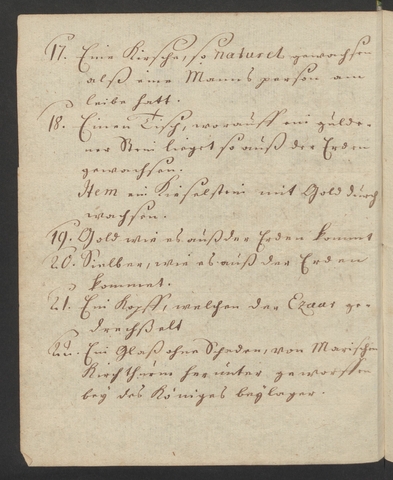 17. Eine Kirsche, so naturel gewachsen
alß eine Manns person am
leibe hatt.
18. Einen Tisch, worauff ein gülde-
ner Stein lieget so auß der Erden
gewachsen.
Item ein Kieselstein mit Gold durch
wachsen.
19. Gold wie es auß der Erden kommt
20. Sielber, wie es auß der Erden
kommet.
21. Ein Kopff, welchen der Czaar ge-
drechßelt
22. Ein Glaß ohne Schaden, von Marischen
Kirchthürm herunter geworffen
bey des Königes beylager.